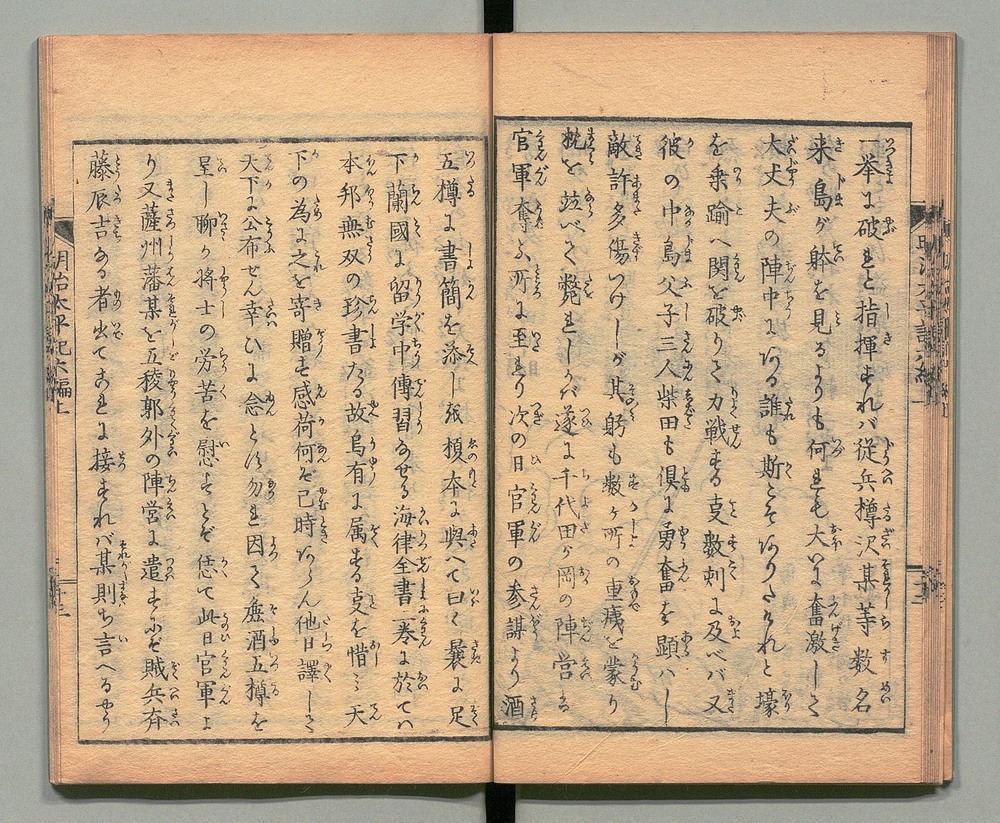 一挙に破れと指揮すれバ従兵樽沢某等数名
来島が躰を見るよりも何れも大いに奮激しさ
大丈夫の陣中にある誰も斯こそありたけれと壕
を乗踰へ関を破りて力戦する事数刻に及べバ又
彼の中島父子三人柴田も倶に勇奮を顕ハし
敵許多傷つけしが其躬も数ヶ所の重痍を蒙り
枕を並べて斃れしかバ遂に千代田ヶ岡の陣営ハ
官軍奪ふ所に至れり次の日官軍の参謀より酒
五樽に書簡を添し
榎本に與へて曰く曩に足
下蘭國に留学中傳習なせる海律全書二巻に於てハ
本邦無双の珍書たる故烏有に属する事を惜ミ天
下の為に之を寄贈す感荷何ぞ已時あらん他日譯しさ
天下に公布せん幸ひに念とする勿れ因て麁酒五樽を
呈し聊か将士の労苦を慰すとぞ恁て此日官軍よ
り又薩州藩某を五稜郭外の陣営に遣すにぞ賊兵斉
藤辰吉なる者出てこれに接すれバ某則ち言へるやう
明治太平記六編上